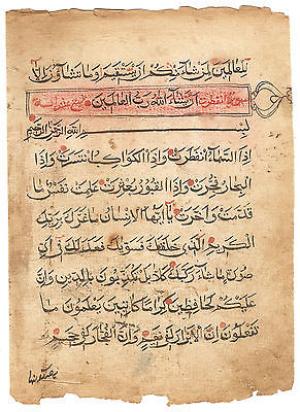 للعالمين لمن شاء منكم ان يستقيم وما تشاؤن الا
ان يشاء الله رب العالمين
بسم الله الرحمن الرحيم
اذا السماء انفطرت واذا الكواكب انتثرت واذا
البحار فجرت واذا القبور بعثرت علمت نفس ما
قدمت واخرت يا ايها الانسان ما غرك بربك
الكريم الذي خلقك فسويك فعدلك في اي
صورة ما شاء ركبك كلا بل تكذبون بالدين وان
عليكم لحافظين كراما كاتبين يعلمون ما
تفعلون ان الابرار لفي نعيم وان الفجار لفي جحيم
يصلونها